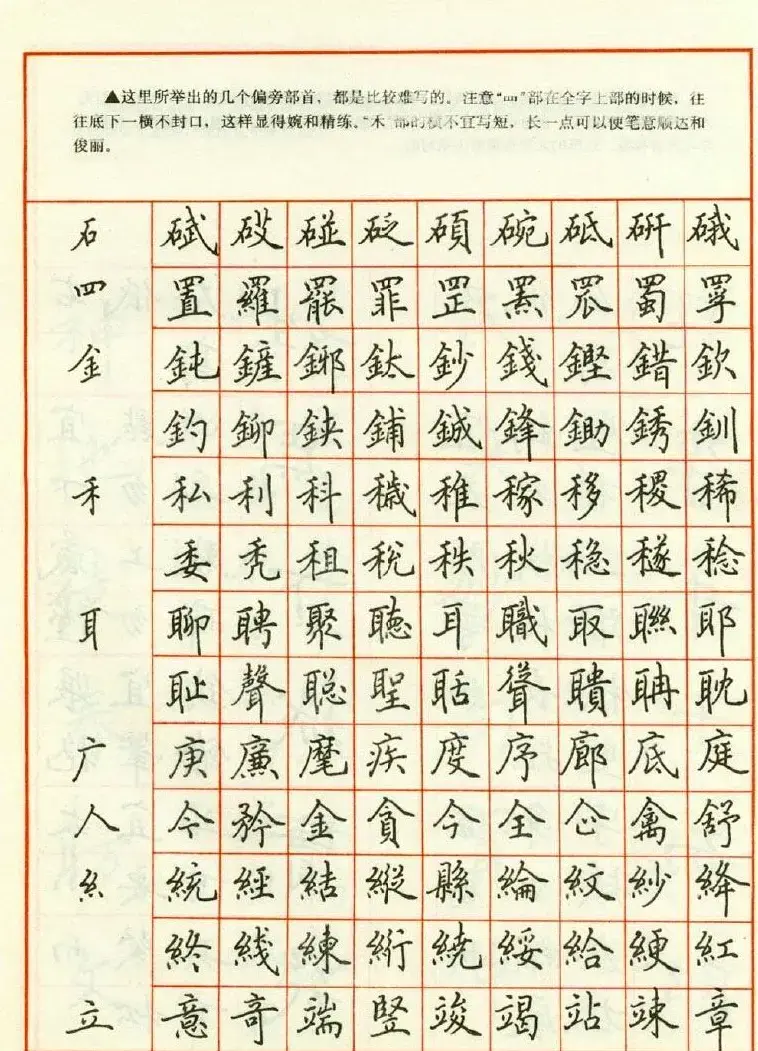 ▲这里所举出的几个偏旁部首，都是比较难写的。注意“罒”部在全字上部的时候，往
往底下一横不封口，这样显得婉和精练。“禾”部的横不宜写短，长一点可以使笔意顺达和
俊丽。
石 碔 砹 碰 砭 碩 碗 砥 硏 硪
罒 置 羅 罷 罪 罡 罴 罛 蜀 罦
金 鈍 鏟 鎯 鈦 鈔 錢 鏗 錯 欽
釣 鉚 鋏 鋪 鋮 鋒 鋤 銹 釧
禾 私 利 科 穢 稚 稼 移 稷 稀
委 禿 租 稅 秩 秋 穩 穟 稔
耳 聊 聘 聚 聽 耳 職 取 聯 耶
耻 聲 聪 聖 聒 聳 聵 聃 耽
广 庚 廉 麾 疾 度 序 廊 底 庭
人 今 矜 金 貪 今 全 企 禽 舒
糹 統 經 結 縱 縣 綸 紋 紗 絳
終 綫 練 絎 繞 綏 給 綆 紅
立 意 奇 端 竪 竣 竭 站 竦 章